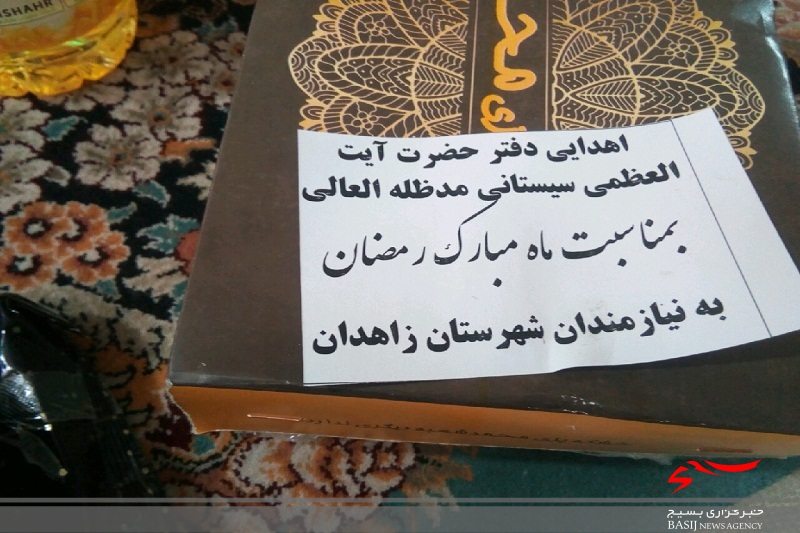 SHAHR
محمد
اهدایی دفتر حضرت آیت
العظمی سیستانی مدظله العالی
بمناسبت ماه مبارک رمضان
به نیازمندان شهرستان زاهدان
خبرگزاری بسیج
BASIJ NEWS AGENCY